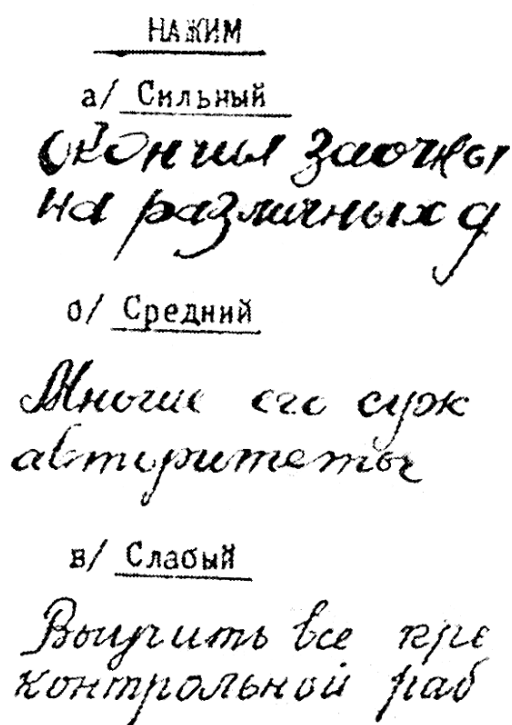 НАЖИМ
а/ Сильный
окончил заочны
на различных д
б/ Средний
Многие его суж
авторитеты
в/ Слабый
Выучить все пре
контрольной раб